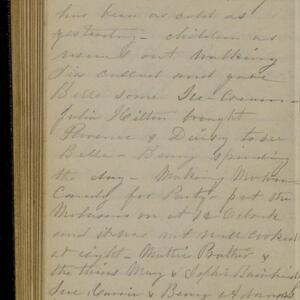 has been as cold as
yesterday - children as
usual out walking
Tea called and gave
Belle some Ice-Cream -
Julia Hilton brought
Florence & Daisy to see
Belle - Benny spending
the day - Making Molasses
Candy for Party - put the
Molasses on at 12 O'clock
and it was not well cooked
at eight - Mattie
the twins May & Sophie
Sue Carrie & Benny